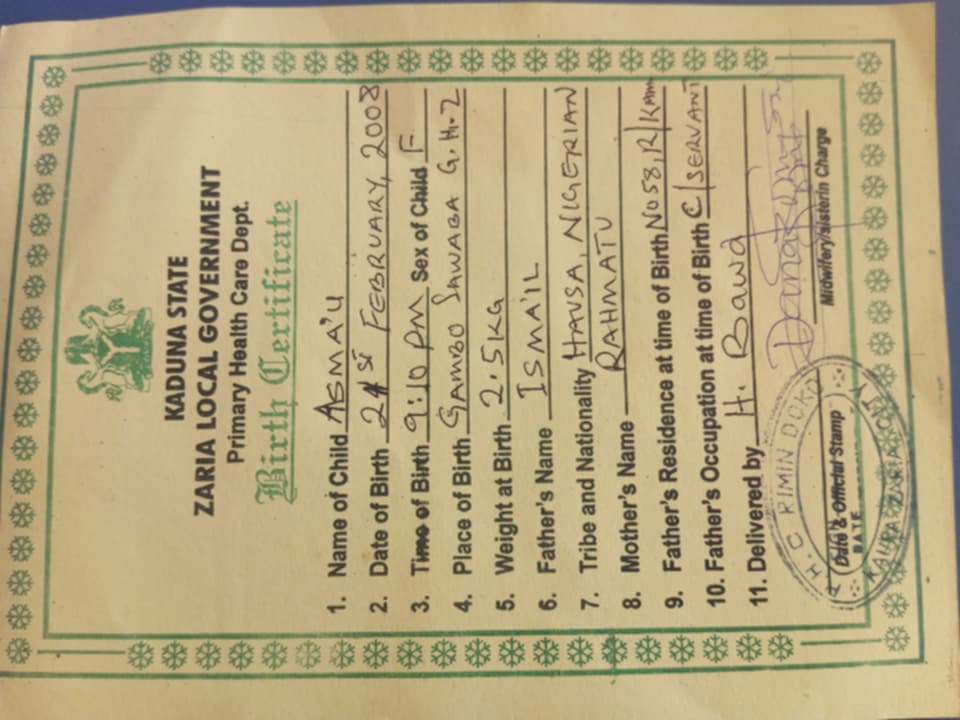 KADUNA STATE
ZARIA LOCAL GOVERNMENT
Primary Health Care Dept.
Birth Certificate
1. Name of Child ASMA'U
2. Date of Birth 21st FEBRUARY, 2008
3. Time of Birth 9:10 PM Sex of Child F
4. Place of Birth GAMBO SAWABA G.H.Z
5. Weight at Birth 2.5KG
6. Father's Name ISMA'IL
7. Tribe and Nationality HAUSA, NIGERIAN
8. Mother's Name RAHMATU
9. Father's Residence at time of Birth No 58, R/KAM
10. Father's Occupation at time of Birth C/SERVANT
11. Delivered by H. Bawa
H.C RIMIN DOKO
Date & Official Stamp
DATE
KAURA ZARIA
Midwifery/sisterin Charge